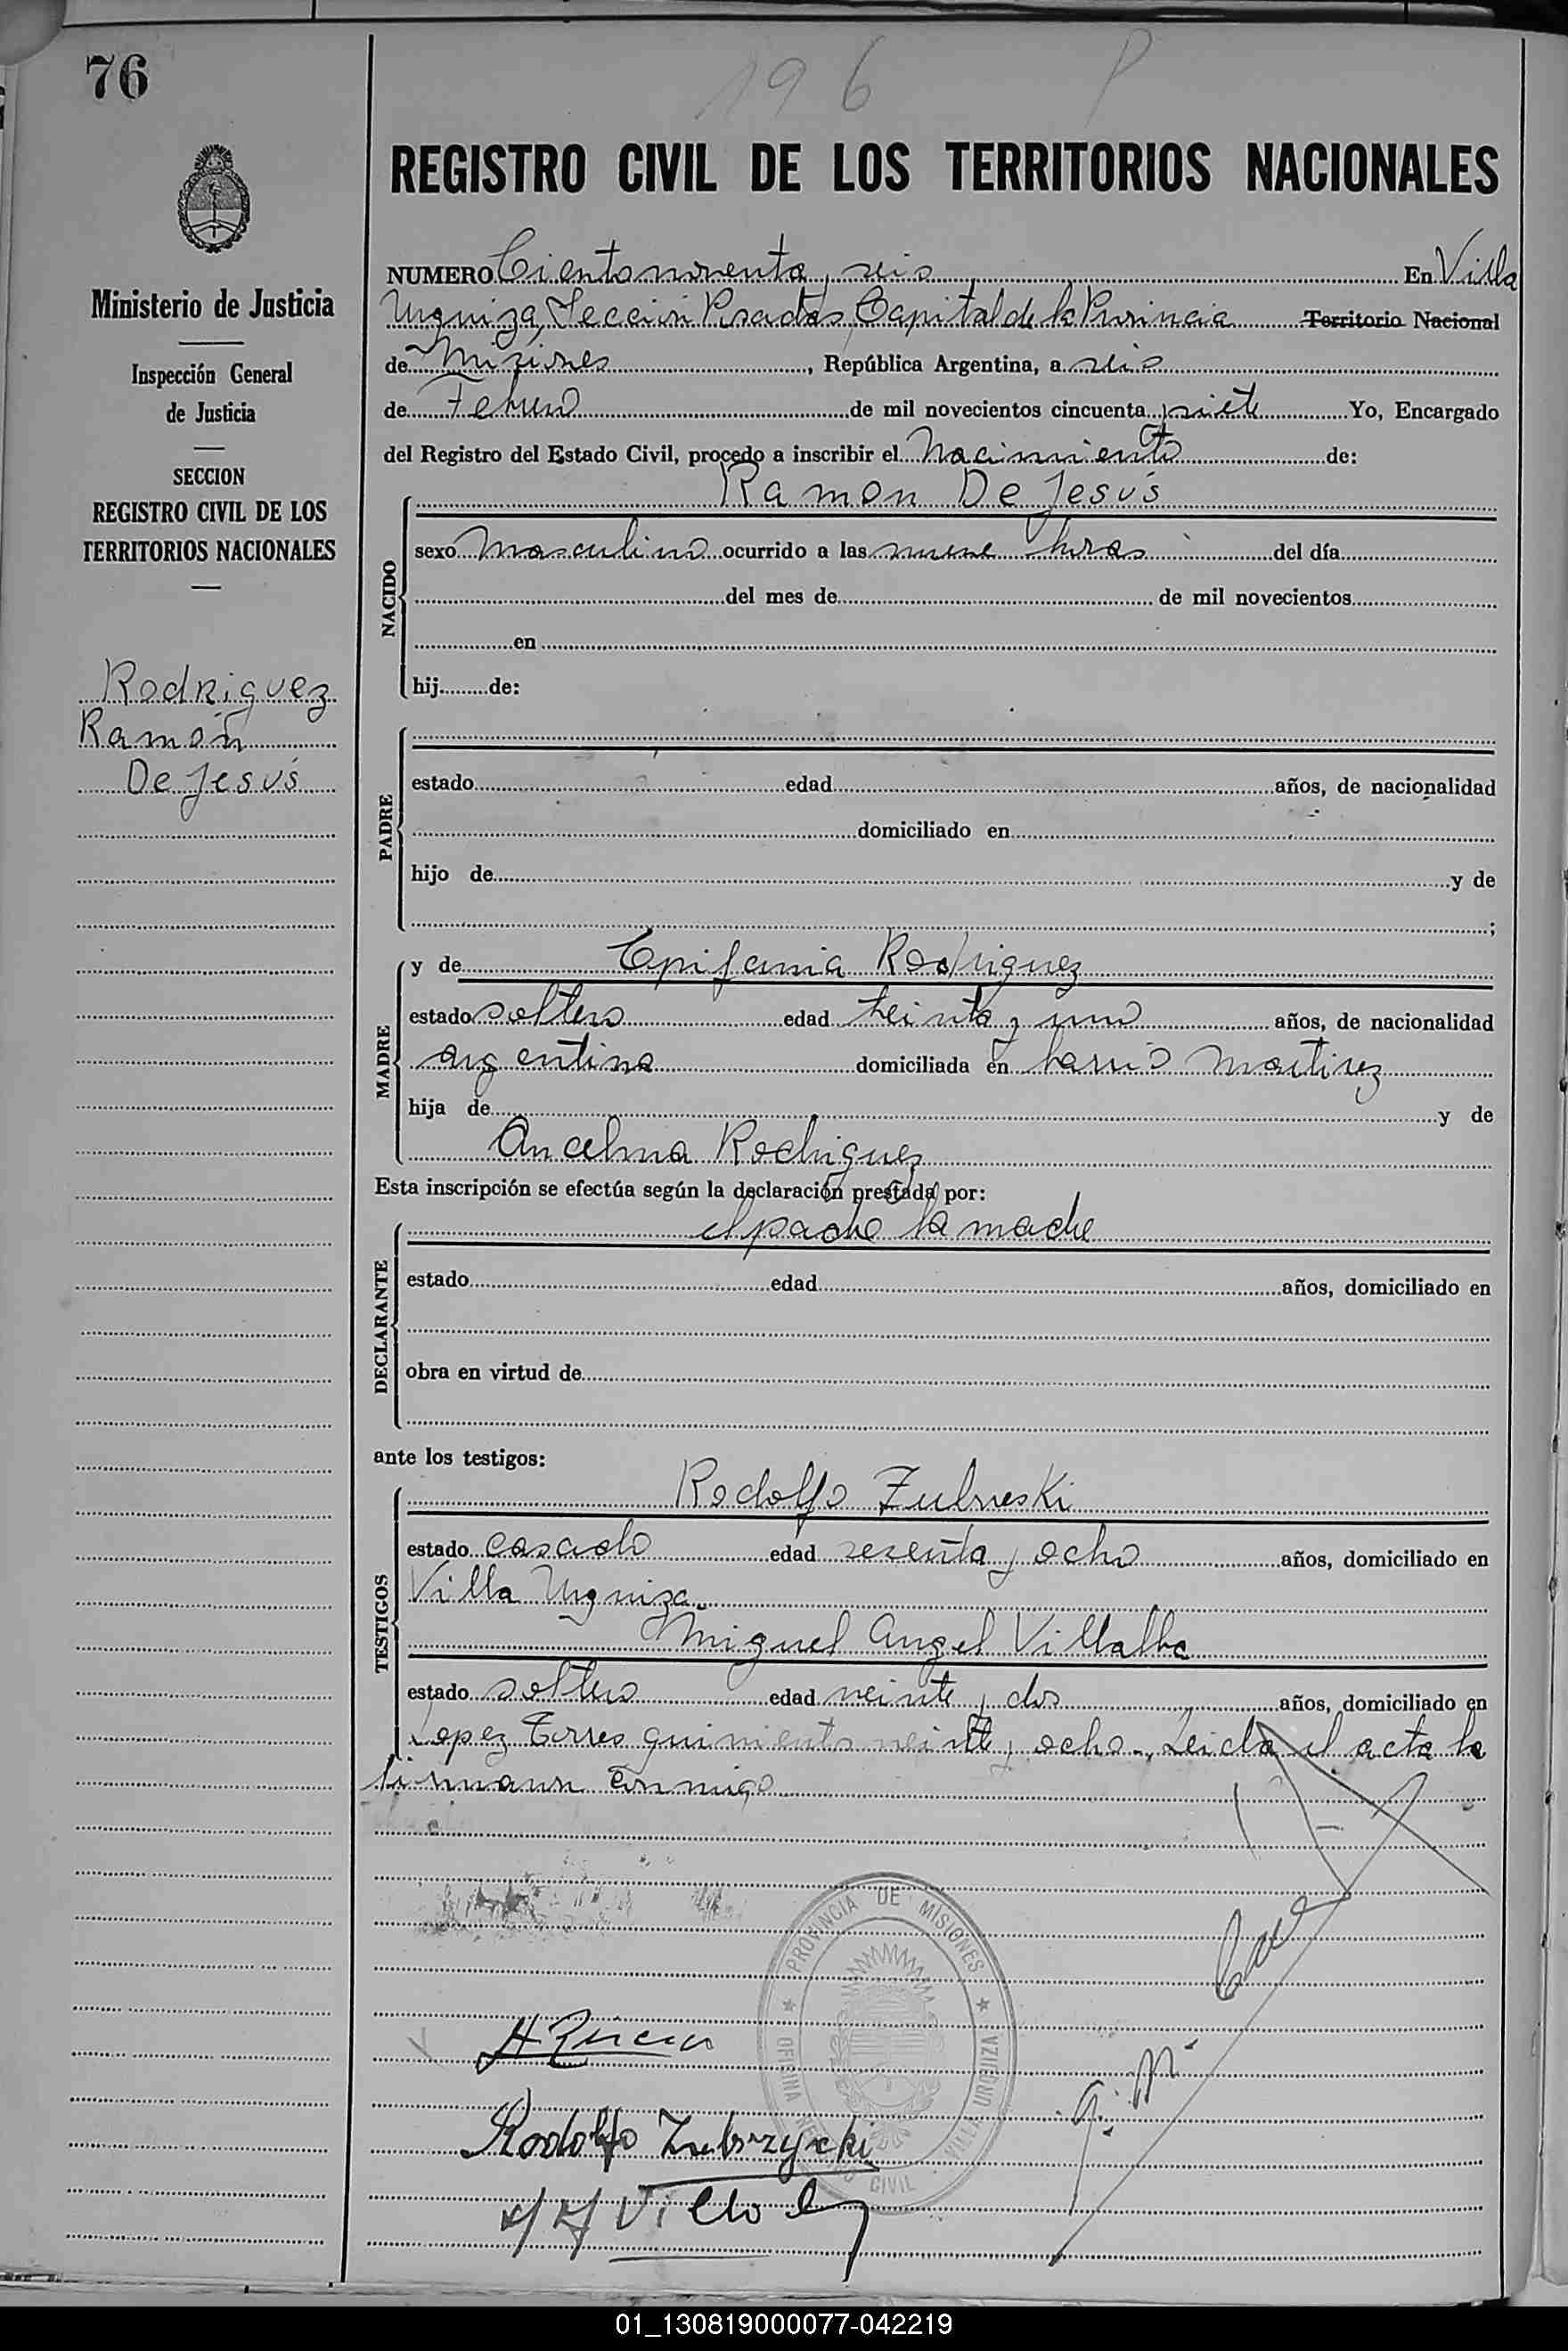 76
196 P
REGISTRO CIVIL DE LOS TERRITORIOS NACIONALES
Ministerio de Justicia
Inspección General
de Justicia
SECCION
REGISTRO CIVIL DE LOS
TERRITORIOS NACIONALES
Rodriguez
Ramón
De Jesús
NUMERO Ciento noventa y seis En Villa
Urquiza, Sección Posadas, Capital de la Provincia Territorio Nacional
de Misiones, República Argentina, a seis
de Febrero de mil novecientos cincuenta y siete Yo, Encargado
del Registro del Estado Civil, procedo a inscribir el Nacimiento de:
NACIDO
Ramon De Jesús
sexo masculino ocurrido a las nueve horas del día
del mes de de mil novecientos
en
hij de:
PADRE
estado edad años, de nacionalidad
domiciliado en
hijo de y de
;
MADRE
y de Epifania Rodriguez
estado soltera edad treinta y uno años, de nacionalidad
argentina domiciliada en barrio Martirez
hija de y de
Ancelma Rodriguez
Esta inscripción se efectúa según la declaración prestada por:
DECLARANTE
el padre la madre
estado edad años, domiciliado en
obra en virtud de
ante los testigos:
TESTIGOS
Rodolfo Zubreski
estado casado edad sesenta y ocho años, domiciliado en
Villa Urquiza
Miguel Angel Villalba
estado soltero edad veinte y dos años, domiciliado en
Lopez Torres quiniento veinte y ocho. Leida el acta la
firmaron conmigo
PROVINCIA DE MISIONES
OFICINA REGISTRO CIVIL VILLA URQUIZA
Rodolfo Zubrzycki
01_130819000077-042219